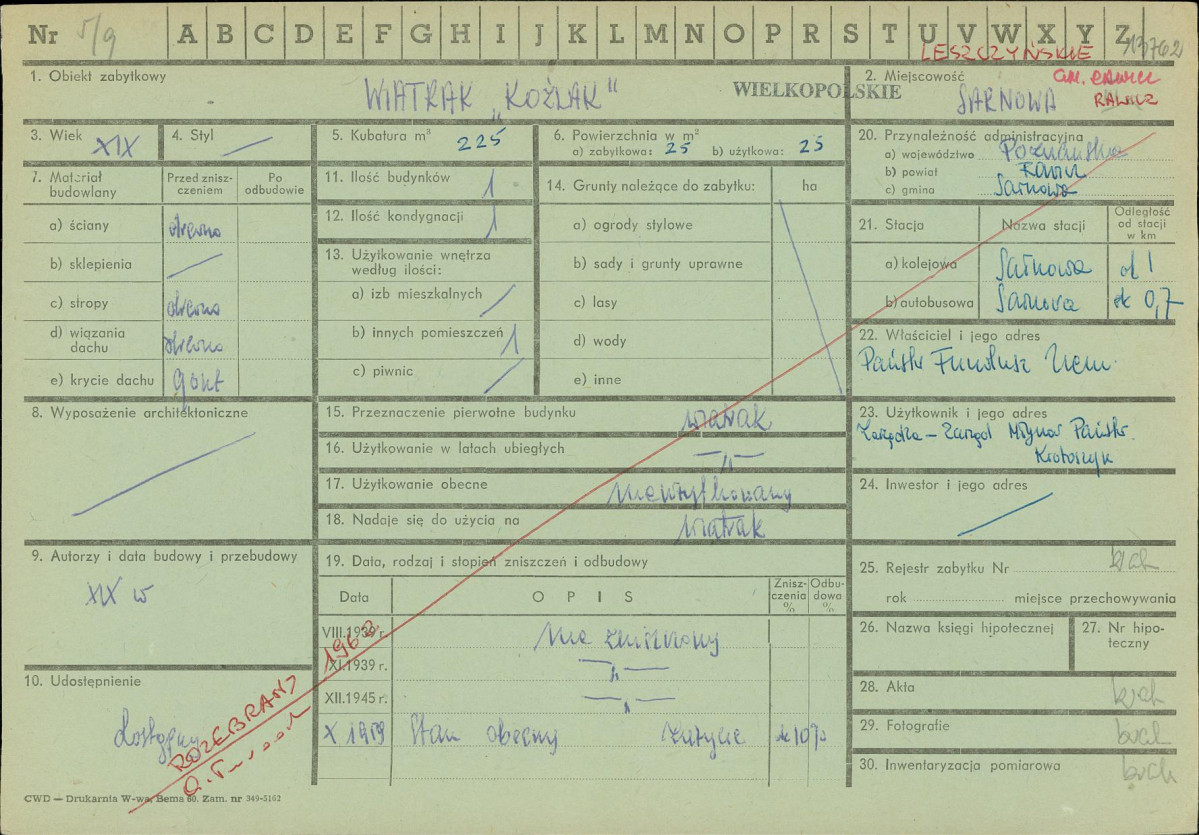 Nr 5/9 A B C D E F G H I J K L M N O P R S T U V W X Y Z
LESZCZYŃSKIE
1. Obiekt zabytkowy
WIATRAK „KOŹLAK"
WIELKOPOLSKIE
2. Miejscowość
SARNOWA
RAWICZ
3. Wiek XIX
4. Styl —
5. Kubatura m³ 225
6. Powierzchnia w m²
a) zabytkowa: 25 b) użytkowa: 25
20. Przynależność administracyjna
a) województwo Poznańskie
b) powiat Rawicz
c) gmina Sarnowa
7. Materiał budowlany
Przed zniszczeniem
Po odbudowie
a) ściany drewno
b) sklepienia —
c) stropy drewno
d) wiązania dachu drewno
e) krycie dachu gont
11. Ilość budynków 1
12. Ilość kondygnacji 1
13. Użytkowanie wnętrza
według ilości:
a) izb mieszkalnych —
b) innych pomieszczeń 1
c) piwnic —
14. Grunty należące do zabytku: ha
a) ogrody stylowe
b) sady i grunty uprawne
c) lasy
d) wody
e) inne
21. Stacja
Nazwa stacji
Odległość od stacji w km
a) kolejowa Sarnowa ok 1
b) autobusowa Sarnowa ok 0,7
22. Właściciel i jego adres
Państw Fundusz Ziem.
8. Wyposażenie architektoniczne
15. Przeznaczenie pierwotne budynku wiatrak
16. Użytkowanie w latach ubiegłych —„—
17. Użytkowanie obecne nieużytkowany
18. Nadaje się do użycia na wiatrak
23. Użytkownik i jego adres
Zarządza – Zarząd Młynów Państw.
Krotoszyn
24. Inwestor i jego adres
9. Autorzy i data budowy i przebudowy
XIX w
19. Data, rodzaj i stopień zniszczeń i odbudowy
Data
OPIS
Zniszczenia %
Odbudowa %
VIII.1939 r. Nie zniszczony
XI.1939 r. —„—
XII.1945 r. —„—
X 1959 Stan obecny zużycie ok 10%
25. Rejestr zabytku Nr brak
rok miejsce przechowywania
26. Nazwa księgi hipotecznej
27. Nr hipoteczny
28. Akta brak
29. Fotografie brak
30. Inwentaryzacja pomiarowa brak
10. Udostępnienie
dostępny
ROZEBRANY 1968
CWD — Drukarnia W-wa, Bema 60. Zam. nr 349-5162